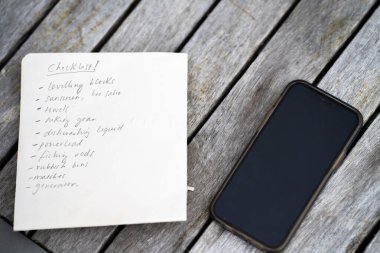 Checklist!
- levelling blocks
- sunscreen,
- towels
- hiking gear
- dishwashing liquid
- powerlead
- fishing rods
- rubbish bins
- matches
- generator